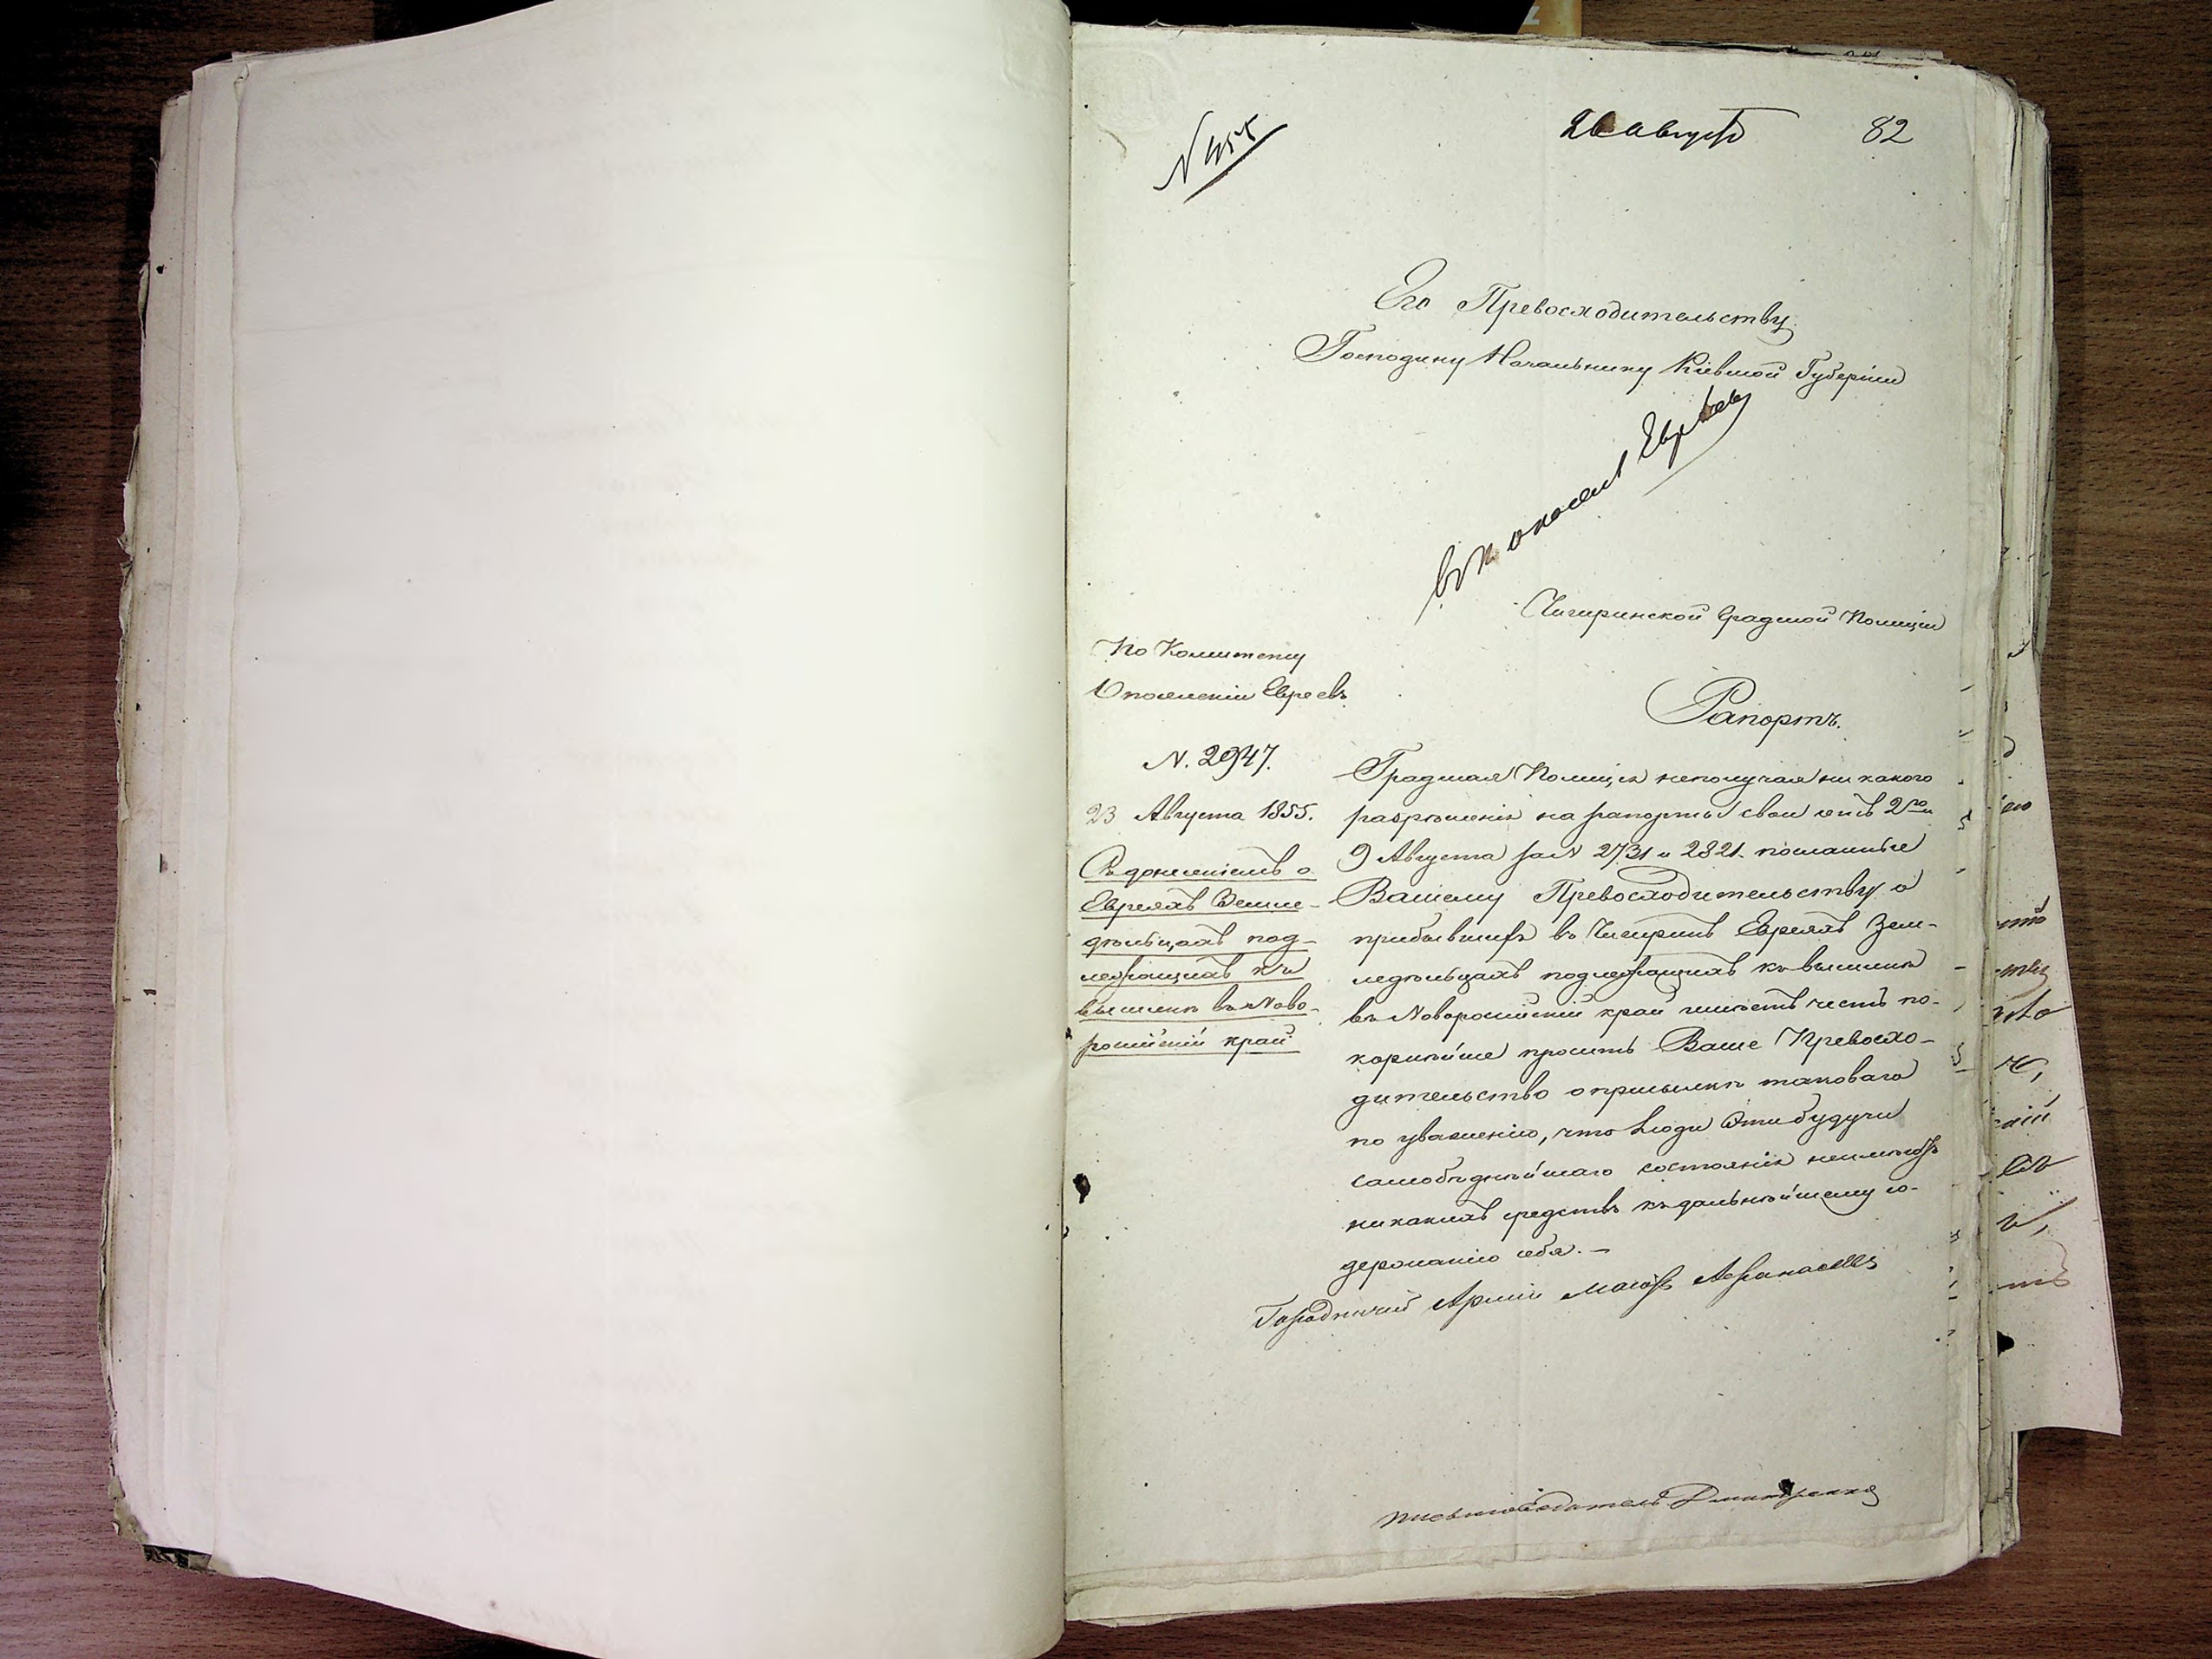 26 Август 82
N 455
Его Превосходительству
Господину Начальнику Кіевской Губерніи
В К о посел Евреев
Чигиринской Градской Полиціи
По Комитету
О поселеніи Евреевъ
Рапортъ.
N. 2947.
23 Августа 1855.
Съ донесеніемъ о
Евреяхъ Земле-
дѣльцахъ под-
лежащихъ къ
высылкѣ въ Ново-
россійскій край
Градская Полиція неполучая ни какого
разрѣшенія на рапорты свои отъ 2го и
9 Августа за N 2731 и 2821. посланные
Вашему Превосходительству о
прибывшихъ въ Чигиринъ Евреяхъ Зем-
ледѣльцахъ подлежащихъ къ высылкѣ
въ Новороссійскій край имѣетъ честь по-
корнѣйше просить Ваше Превосхо-
дительство о присылкѣ таковаго
по уваженію, что Люди Эти будучи
самобѣднѣйшаго состоянія неимѣютъ
ни какихъ средствъ къ дальнѣйшему со-
держанію себя. —
Городничий Арміи Маіоръ Афанасьевъ
Письмоводитель Дмитренко